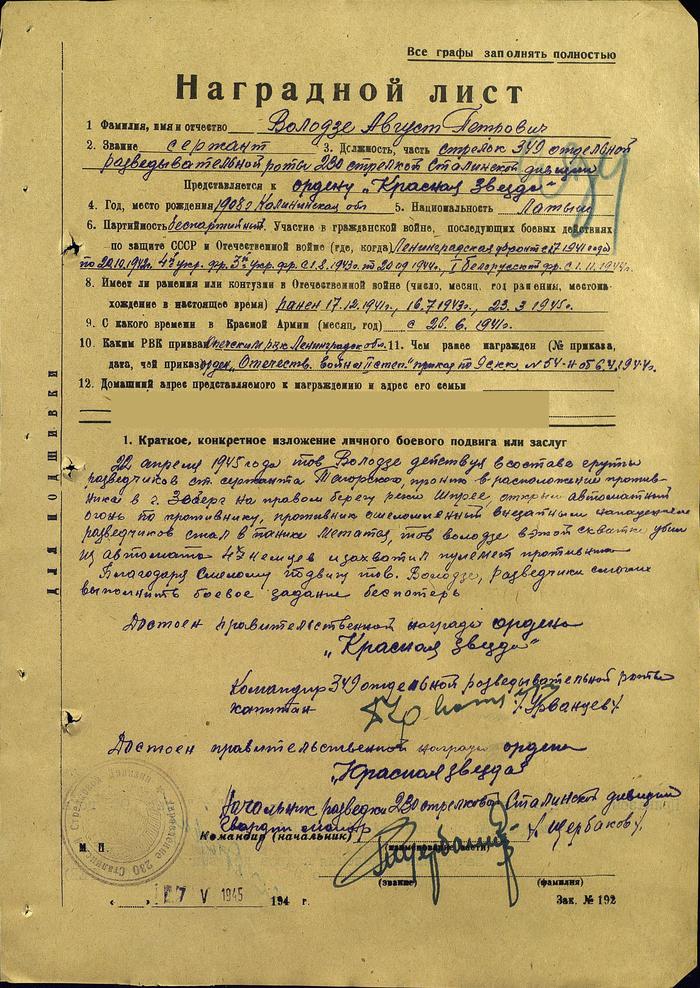 Все графы заполнять полностью
Наградной лист
1 Фамилия, имя и отчество Володзе Август Петрович
2. Звание сержант 3. Должность, часть стрелок 349 отдельной
разведывательной роты 230 стрелков Сталинской дивизии
Представляется к ордену „Красная Звезда"
4. Год, место рождения 1908 Калининская обл 5. Национальность Латыш
6. Партийность беспартийный. Участие в гражданской войне, последующих боевых действиях
по защите СССР и Отечественной войне (где, когда) Ленинградская фронт с 27 1941 года
по 20.10.1942г. 4й укр. фр. 3й укр. фр. с 1.8.1943г. по 20.09.1944г., I Белорусской фр. с 1.11.1944г.
8. Имеет ли ранения или контузии в Отечественной войне (число, месяц, год ранения, местона-
хождение в настоящее время) ранен 17.12.1941г., 16.7.1943г., 23.3.1945г.
9. С какого времени в Красной Армии (месяц, год) с 26.6.1941г.
10. Каким РВК призван Опечским рвк Ленинградск обл. 11. Чем ранее награжден (№ приказа,
дата, чей приказ) орден „Отечеств. война II степ" приказ по 9 скк. №54-н об 6.4.1944г.
12. Домашний адрес представляемого к награждению и адрес его семьи
ДЛЯ ПОДШИВКИ
1. Краткое, конкретное изложение личного боевого подвига или заслуг
22 апреля 1945 года тов Володзе действуя в составе групы
разведчиков ст. сержанта проник в расположение против-
ника в г. на правом берегу реки Шпрее, открыл автоматный
огонь по противнику, противник ошеломленный внезапным нападением
разведчиков стал в панике метатся, тов володзе в этой схватке убил
из автомата 47 немцев и захватил пулемет противника
Благодаря смелому подвигу тов. Володзе, разведчики смогли
выполнить боевое задание беспотерь
Достоен правительственной награды ордена
„Красная Звезда"
Командир 349 отдельной разведывательной роты
капитан /Урванцев/
Достоен правительственной награды ордена
„Красная Звезда"
Начальник разведки 230 стрелковой Сталинской дивизии
Гвардии майор /Щербаков/
Командир (начальник)
(наименование части)
М. П.
(звание) (фамилия)
« » 17 V 1945 194 г.
Зак. № 192